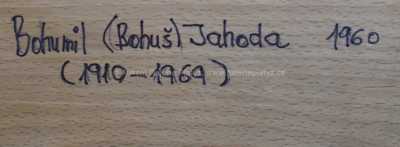 Bohumil (Bohuš) Jahoda 1960
(1910-1969)